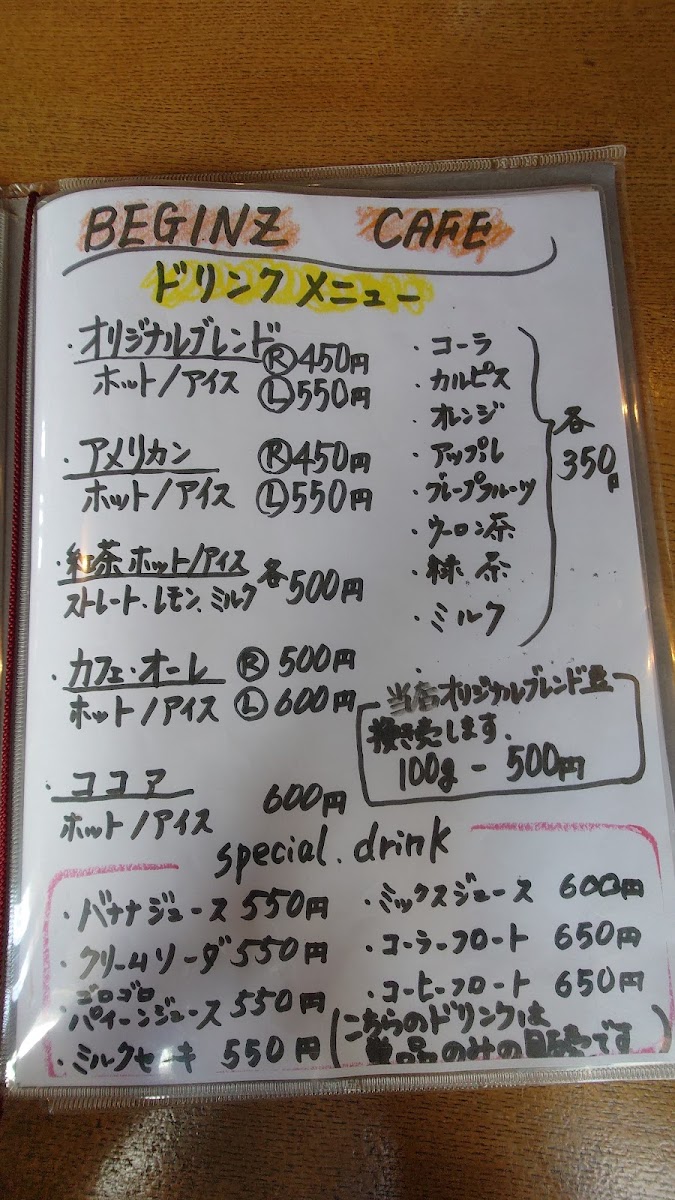 BEGINZ CAFE
ドリンクメニュー
・オリジナルブレンド Ⓡ450円
ホット/アイス Ⓛ550円
・アメリカン Ⓡ450円
ホット/アイス Ⓛ550円
・紅茶 ホット/アイス
ストレート、レモン、ミルク 各500円
・カフェ・オーレ Ⓡ500円
ホット/アイス Ⓛ600円
・ココア 600円
ホット/アイス
・コーラ
・カルピス
・オレンジ
・アップル
・グレープフルーツ
・ウーロン茶
・緑茶
・ミルク
各
350円
当店オリジナルブレンド豆
挽き売します。
100g - 500円
special.drink
・バナナジュース 550円
・クリームソーダ 550円
ゴロゴロ
・パイーンジュース 550円
・ミルクセーキ 550円
・ミックスジュース 600円
・コーラーフロート 650円
・コーヒーフロート 650円
(こちらのドリンクは
単品のみの販売です